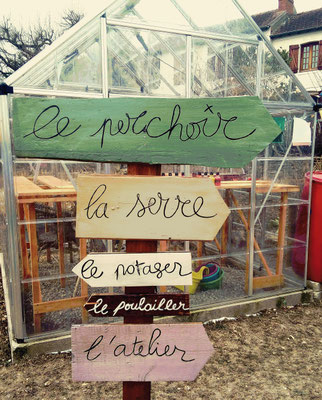 le perchoir
la serre
le potager
le poulailler
l'atelier